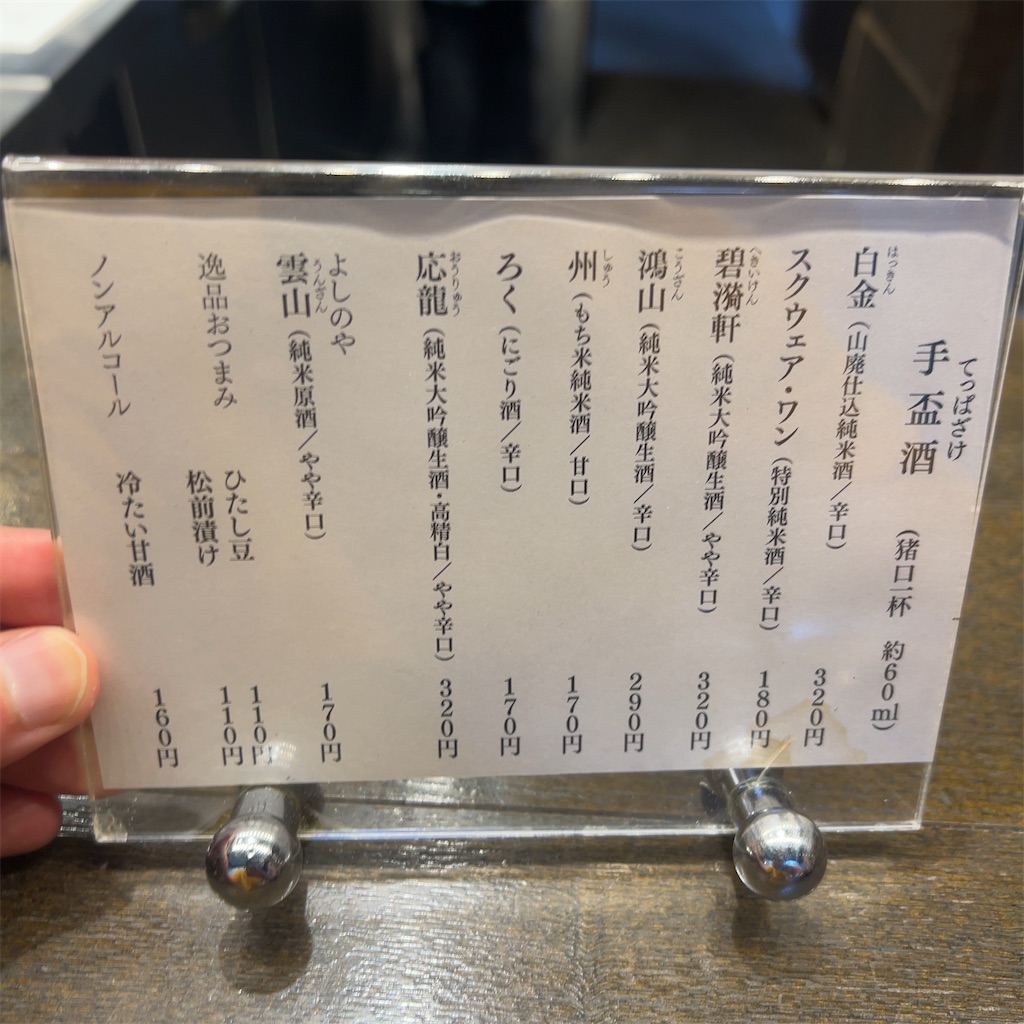 てっぱざけ
手盃酒 （猪口一杯 約60ml）
はっきん
白金（山廃仕込純米酒／辛口） 320円
スクウェア・ワン（特別純米酒／辛口） 180円
へきいけん
碧漪軒（純米大吟醸生酒／やや辛口） 320円
こうざん
鴻山（純米大吟醸生酒／辛口） 290円
しゅう
州（もち米純米酒／甘口） 170円
ろく（にごり酒／辛口） 170円
おうりゅう
応龍（純米大吟醸生酒・高精白／やや辛口） 320円
よしのや
うんざん
雲山（純米原酒／やや辛口） 170円
逸品おつまみ
ひたし豆 110円
松前漬け 110円
ノンアルコール 冷たい甘酒 160円